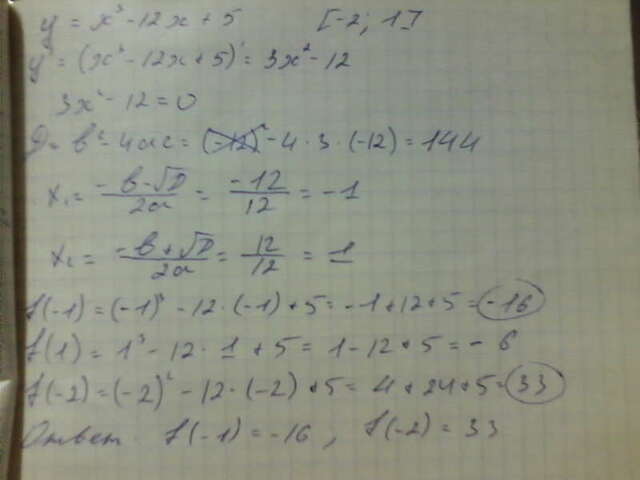 y = x³ - 12x + 5 [-2; 1]
y' = (x³ - 12x + 5)' = 3x² - 12
3x² - 12 = 0
D = b² - 4ac = (-12)² - 4 · 3 · (-12) = 144
x₁ = (-b - √D)/2a = -12/12 = -1
x₂ = (-b + √D)/2a = 12/12 = 1
f(-1) = (-1)³ - 12 · (-1) + 5 = -1 + 12 + 5 = -16
f(1) = 1³ - 12 · 1 + 5 = 1 - 12 + 5 = - 6
f(-2) = (-2)² - 12 · (-2) + 5 = 4 + 24 + 5 = 33
Ответ. f(-1) = -16, f(-2) = 33